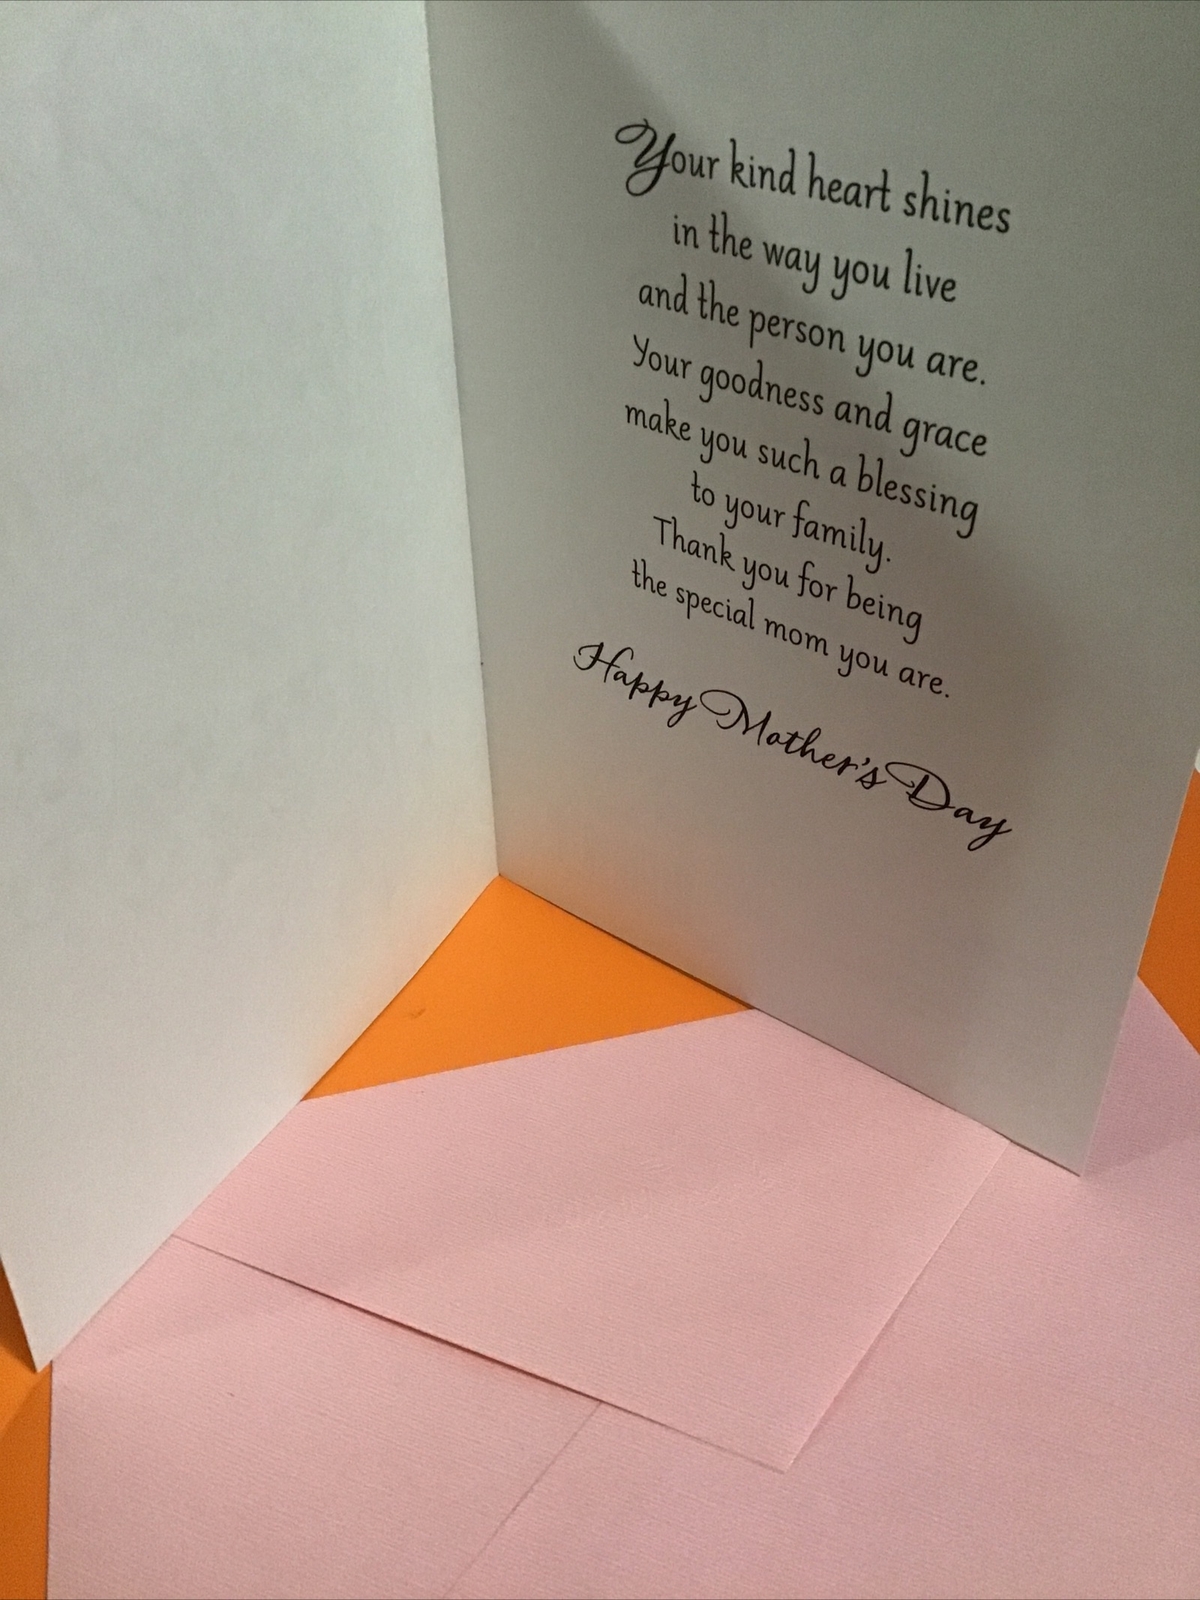 Your kind heart shines
in the way you live
and the person you are.
Your goodness and grace
make you such a blessing
to your family.
Thank you for being
the special mom you are.
Happy Mother's Day